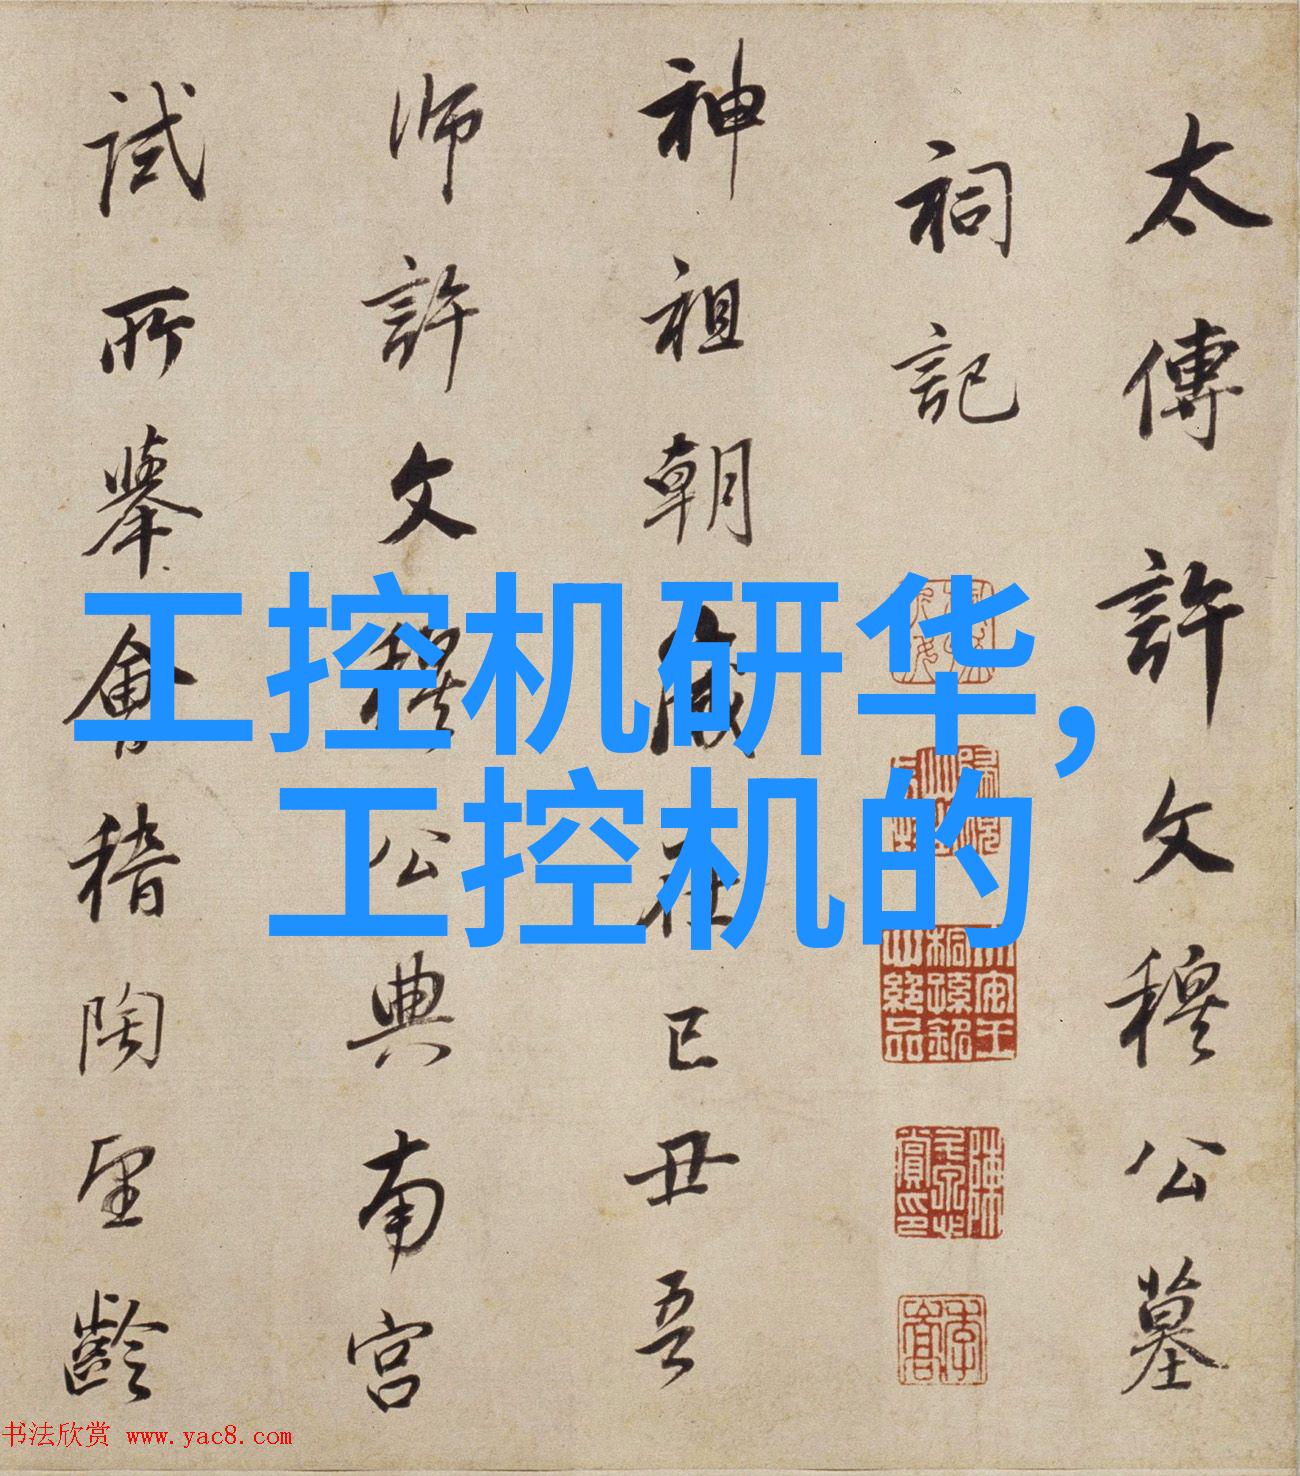 太傅許文穆公墓
祠記
神祖朝歲在己丑吾
師許文穆公典南宮
試所舉會稽陶望齡
工控机研华,
工控机的
书法欣赏 www.yac8.com